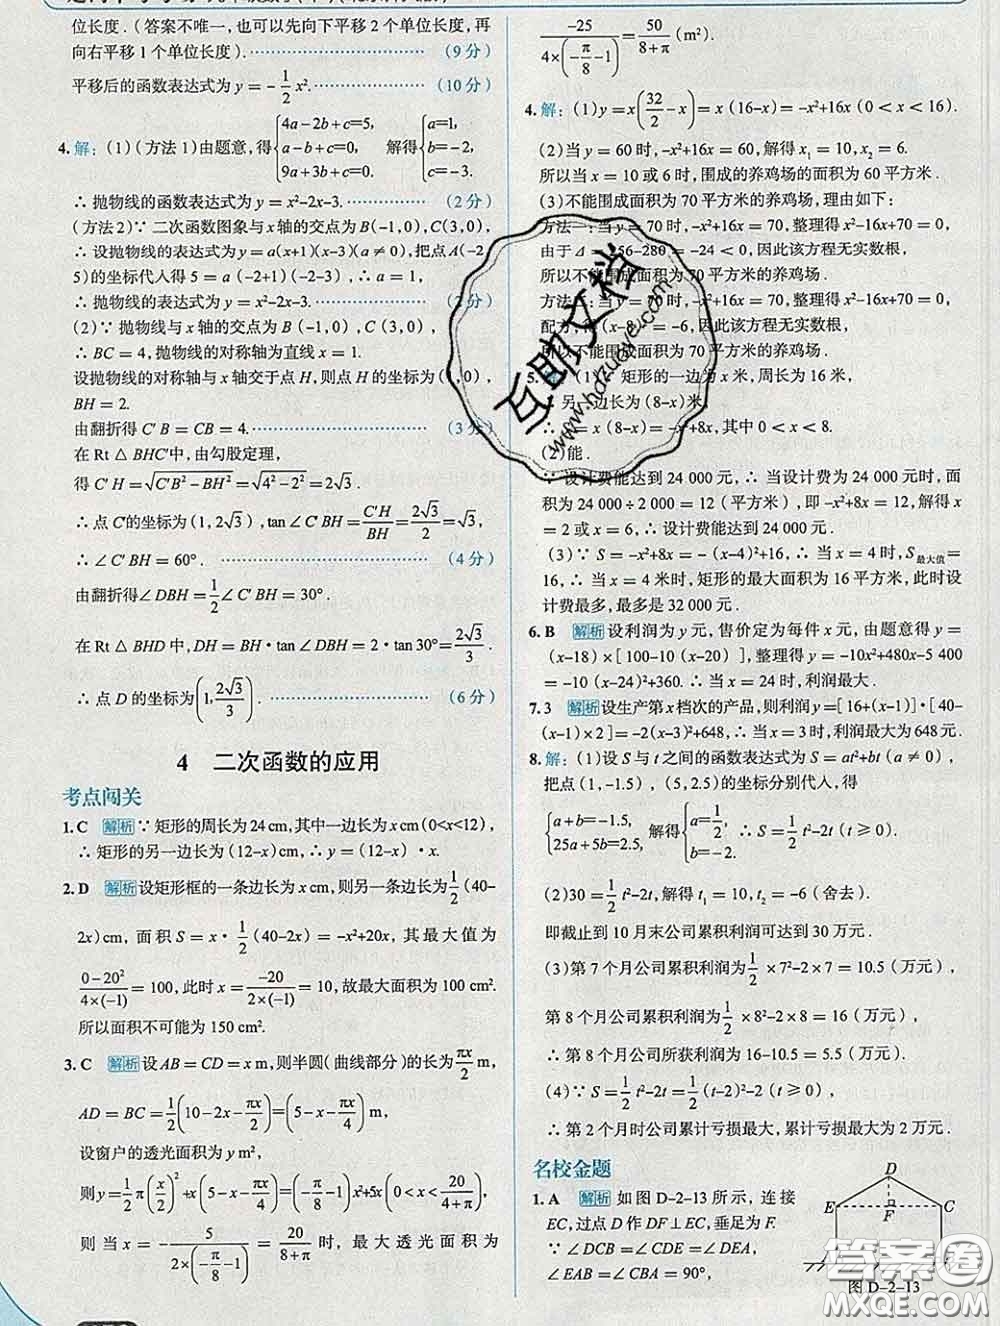 位长度.(答案不唯一,也可以先向下平移 2 个单位长度,再
向右平移 1 个单位长度).(9分)
平移后的函数表达式为 y=-1/2 x².(10分)
4.解:(1)(方法1)由题意,得{4a-2b+c=5, a-b+c=0, 9a+3b+c=0. 解得{a=1, b=-2, c=-3.
∴ 抛物线的函数表达式为 y=x²-2x-3.(2分)
(方法2)∵ 二次函数图象与 x 轴的交点为 B(-1,0),C(3,0),
∴ 设抛物线的表达式为 y=a(x+1)(x-3)(a≠0),把点 A(-2,
5)的坐标代入得 5=a(-2+1)(-2-3),∴ a=1,
∴ 抛物线的表达式为 y=x²-2x-3.(2分)
(2)∵ 抛物线与 x 轴的交点为 B(-1,0),C(3,0),
∴ BC=4,抛物线的对称轴为直线 x=1.
设抛物线的对称轴与 x 轴交于点 H,则点 H 的坐标为(1,0),
BH=2.
由翻折得 C'B=CB=4.(3分)
在 Rt△BHC'中,由勾股定理,
得 C'H=√(C'B²-BH²)=√(4²-2²)=2√3.
∴ 点 C'的坐标为(1,2√3),tan∠C'BH=C'H/BH=2√3/2=√3,
∴ ∠C'BH=60°.(4分)
由翻折得∠DBH=1/2∠C'BH=30°.
在 Rt△BHD 中,DH=BH·tan∠DBH=2·tan30°=2√3/3.
∴ 点 D 的坐标为(1,2√3/3).(6分)
4 二次函数的应用
考点闯关
1.C 解析 ∵ 矩形的周长为 24 cm,其中一边长为 x cm(0<x<12),
∴ 矩形的另一边长为(12-x)cm,∴ y=(12-x)·x.
2.D 解析 设矩形框的一条边长为 x cm,则另一条边长为1/2(40-
2x)cm,面积 S=x·1/2(40-2x)=-x²+20x,其最大值为
(0-20²)/(4×(-1))=100,此时 x=-20/(2×(-1))=10,故最大面积为 100 cm².
所以面积不可能为 150 cm².
3.C 解析 设 AB=CD=x m,则半圆(曲线部分)的长为πx/2 m,
AD=BC=1/2(10-2x-πx/2)=(5-x-πx/4)m,
设窗户的透光面积为 y m²,
则 y=1/2π(x/2)²+x(5-x-πx/4)=(-π/8-1)x²+5x(0<x<20/(4+π)),
则当 x=-5/(2×(-π/8-1))=20/(8+π)时,最大透光面积为
-25/(4×(-π/8-1))=50/(8+π)(m²).
4.解:(1)y=x(32/2-x)=x(16-x)=-x²+16x(0<x<16).
(2)当 y=60 时,-x²+16x=60,解得 x₁=10,x₂=6.
所以当 x=10 或 6 时,围成的养鸡场的面积为 60 平方米.
(3)不能围成面积为 70 平方米的养鸡场,理由如下:
方法一:当 y=70 时,-x²+16x=70,整理得 x²-16x+70=0,
由于 Δ=256-280=-24<0,因此该方程无实数根,
所以不能围成面积为 70 平方米的养鸡场.
方法二:当 y=70 时,-x²+16x=70,整理得 x²-16x+70=0,
配方,得(x-8)²=-6,因此该方程无实数根,
所以不能围成面积为 70 平方米的养鸡场.
5.解:(1)∵ 矩形的一边为 x 米,周长为 16 米,
∴ 另一边长为(8-x)米,
∴ S=x(8-x)=-x²+8x,其中 0<x<8.
(2)能.
∵ 设计费能达到 24 000 元,∴ 当设计费为 24 000 元时,面
积为 24 000÷2 000=12(平方米),即 -x²+8x=12,解得 x
=2 或 x=6,∴ 设计费能达到 24 000 元.
(3)∵ S=-x²+8x=-(x-4)²+16,∴ 当 x=4 时,S最大值=
16,∴ 当 x=4 米时,矩形的最大面积为 16 平方米,此时设
计费最多,最多是 32 000 元.
6.B 解析 设利润为 y 元,售价定为每件 x 元,由题意得 y=
(x-18)×[100-10(x-20)],整理得 y=-10x²+480x-5 400
=-10(x-24)²+360.∴ 当 x=24 时,利润最大.
7.3 解析 设生产第 x 档次的产品,则利润 y=[16+(x-1)]·[40-
(x-1)×2]=-2(x-3)²+648,∴ 当 x=3 时,利润最大为 648 元.
8.解:(1)设 S 与 t 之间的函数表达式为 S=at²+bt(a≠0),
把点(1,-1.5),(5,2.5)的坐标分别代入,得
{a+b=-1.5, 25a+5b=2.5, 解得{a=1/2, b=-2. ∴ S=1/2t²-2t(t≥0).
(2)30=1/2t²-2t,解得 t₁=10,t₂=-6(舍去).
即截止到 10 月末公司累积利润可达到 30 万元.
(3)第 7 个月公司累积利润为1/2×7²-2×7=10.5(万元),
第 8 个月公司累积利润为1/2×8²-2×8=16(万元),
∴ 第 8 个月公司所获利润为 16-10.5=5.5(万元).
(4)∵ S=1/2t²-2t=1/2(t-2)²-2(t≥0),
∴ 第 2 个月时公司累计亏损最大,累计亏损最大为 2 万元.
名校金题
1.A 解析 如图 D-2-13 所示,连接
EC,过点 D 作 DF⊥EC,垂足为 F.
∵ ∠DCB=∠CDE=∠DEA,
∠EAB=∠CBA=90°,
D
E F C
图 D-2-13
互助文档
www.hdzuoye.com
答案圈
MXQE.COM